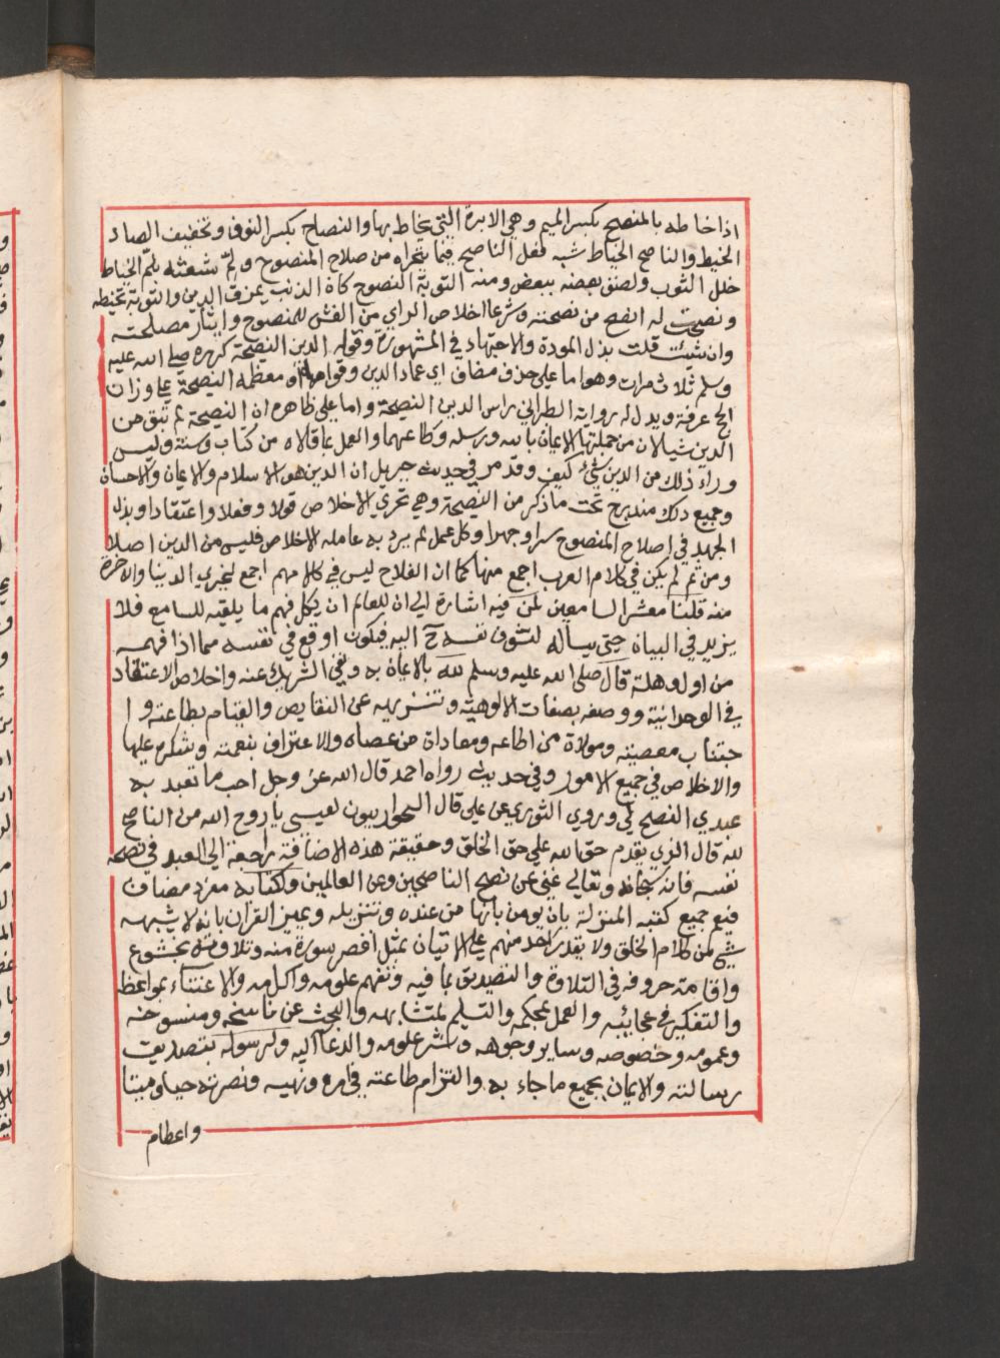 اذا خاطه بالمنصح بكسر الميم وهي الابرة التي يخاط بها والنصاح بكسر النون وتخفيف الصاد
الخيط والناصح الخياط شبه فعل الناصح فيما يتحراه من صلاح المنصوح ولم شعثه بلم الخياط
خلل الثوب ولصق بعضه ببعض ومنه التوبة النصوح كان الذنب يمزق الدين والتوبة تخيطه
ونصحت له افصح من نصحته وشرعا اخلاص الراي من الغش للمنصوح وايثار مصلحته
وان شئت قلت بذل المودة والاجتهاد في المشهورة وقوله الدين النصيحة كرره صلى الله عليه
وسلم ثلاث مرات وهو اما على حذف مضاف اي عماد الدين وقوامه او معظمه النصيحة على وزان
الحج عرفة ويدل له رواية الطبراني راس الدين النصيحة واما على ظاهره ان النصيحة لم تبق من
الدين شيا لان من جملتها الايمان بالله ورسله وطاعتهما والعمل بما قالاه من كتاب وسنة وليس
وراء ذلك من الدين شيء كيف وقد مر في حديث جبريل ان الدين هو الاسلام والايمان والاحسان
وجميع ذلك مندرج تحت ما ذكر من النصيحة وهي تحري الاخلاص قولا وفعلا واعتقادا وبذل
الجهد في اصلاح المنصوح سرا وجهرا وكل عمل لم يرد به عامله الاخلاص فليس من الدين اصلا
ومن ثم لم يكن في كلام العرب اجمع منها كما ان الفلاح ليس في كلامهم اجمع لخيري الدنيا والاخرة
منه قلنا معشر السامعين لمن فيه اشارة الى ان للعالم ان يكل فهم ما يلقيه للسامع فلا
يزيد في البيان حتى يساله لتشوف نفسه ح اليه فيكون اوقع في نفسه مما اذا فهمه
من اول وهلة قال صلى الله عليه وسلم لله بالايمان به ونفي الشريك عنه واخلاص الاعتقاد
في الوحدانية ووصفه بصفات الالوهية وتنزيهه عن النقايص والقيام بطاعته وا
جتناب معصيته وموالاة من اطاعه ومعاداة من عصاه والاعتراف بنعمته وشكره عليها
والاخلاص في جميع الامور وفي حديث رواه احمد قال الله عز وجل احب ما تعبد به
عبدي النصح لي وروي الثوري عن علي قال الحواريون لعيسى يا روح الله من الناصح
لله قال الذي يقدم حق الله على حق الخلق وحقيقة هذه الاضافة راجعة الى العبد في نصحه
نفسه فانه سبحانه وتعالى غني عن نصح الناصحين وعن العالمين ولكتابه مفرد مضاف
فيعم جميع كتبه المنزلة بان يومن بانها من عنده وتنزيله ويميز القران بانه لا يشبهه
شيء من كلام الخلق ولا يقدر احد منهم على الاتيان بمثل اقصر سورة منه وتلاوته بخشوع
واقامة حروفه في التلاوة والتصديق بما فيه وتفهم علومه والاعتناء بمواعظه
والتفكير في عجائبه والعمل بمحكمه والتسليم لمتشابهه والبحث عن ناسخه ومنسوخه
وعمومه وخصوصه وساير وجوهه ونشر علومه والدعاء اليه ولرسوله بتصديق
رسالته والايمان بجميع ما جاء به والتزام طاعته في امره ونهيه ونصرته حيا وميتا
واعظام